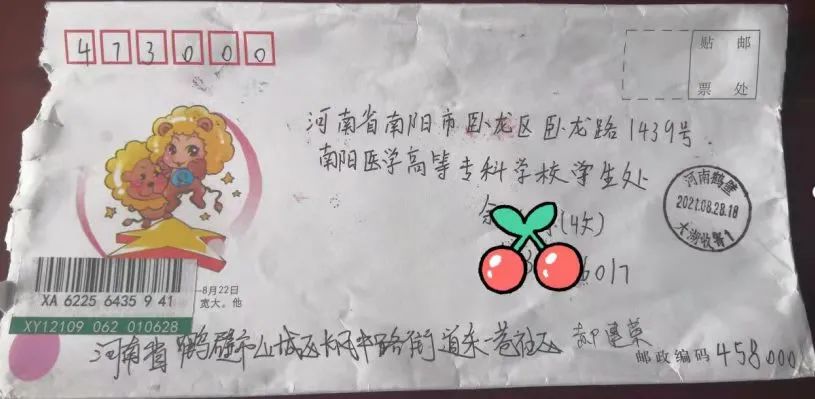 473000
贴 邮
票 处
河南省南阳市卧龙区卧龙路1439号
南阳医学高等专科学校学生处
余
(收)
6017
河南鹤壁
2021.08.28.18
大湖收寄1
8月22日
宽大。他
XA 6225 6435 9 41
XY12109 062 010628
河南省鹤壁市山城区长风中路街道东一巷社区 郝
邮政编码 458000